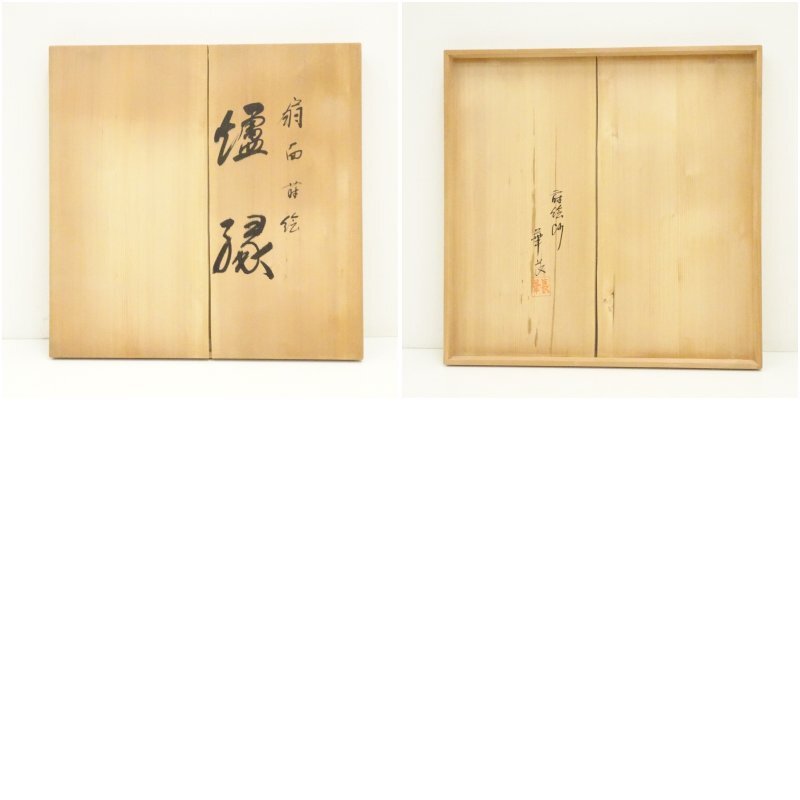 扇面蒔絵
爐縁
蒔絵師
華長